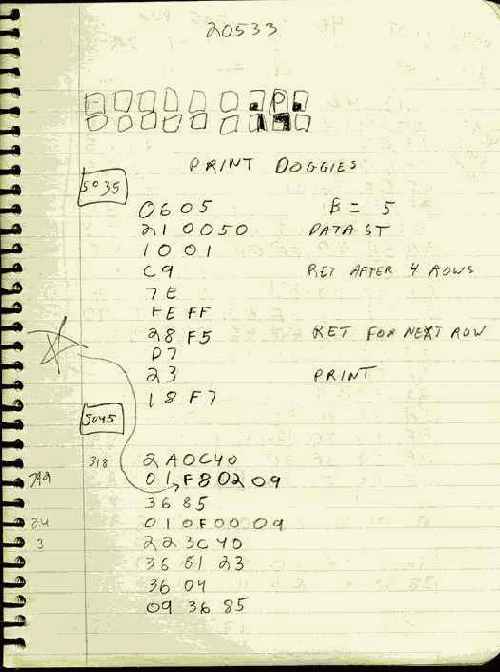 20533
P
PRINT DOGGIES
5035
0605 B = 5
210050 DATA ST
1001
C9 RET AFTER 4 ROWS
7E
FE FF
28 F5 RET FOR NEXT ROW
D7
23 PRINT
18 F7
5045
318 2A0C40
01 F80209
36 85
24 010F00 09
3 223C40
36 81 23
36 04
09 36 85